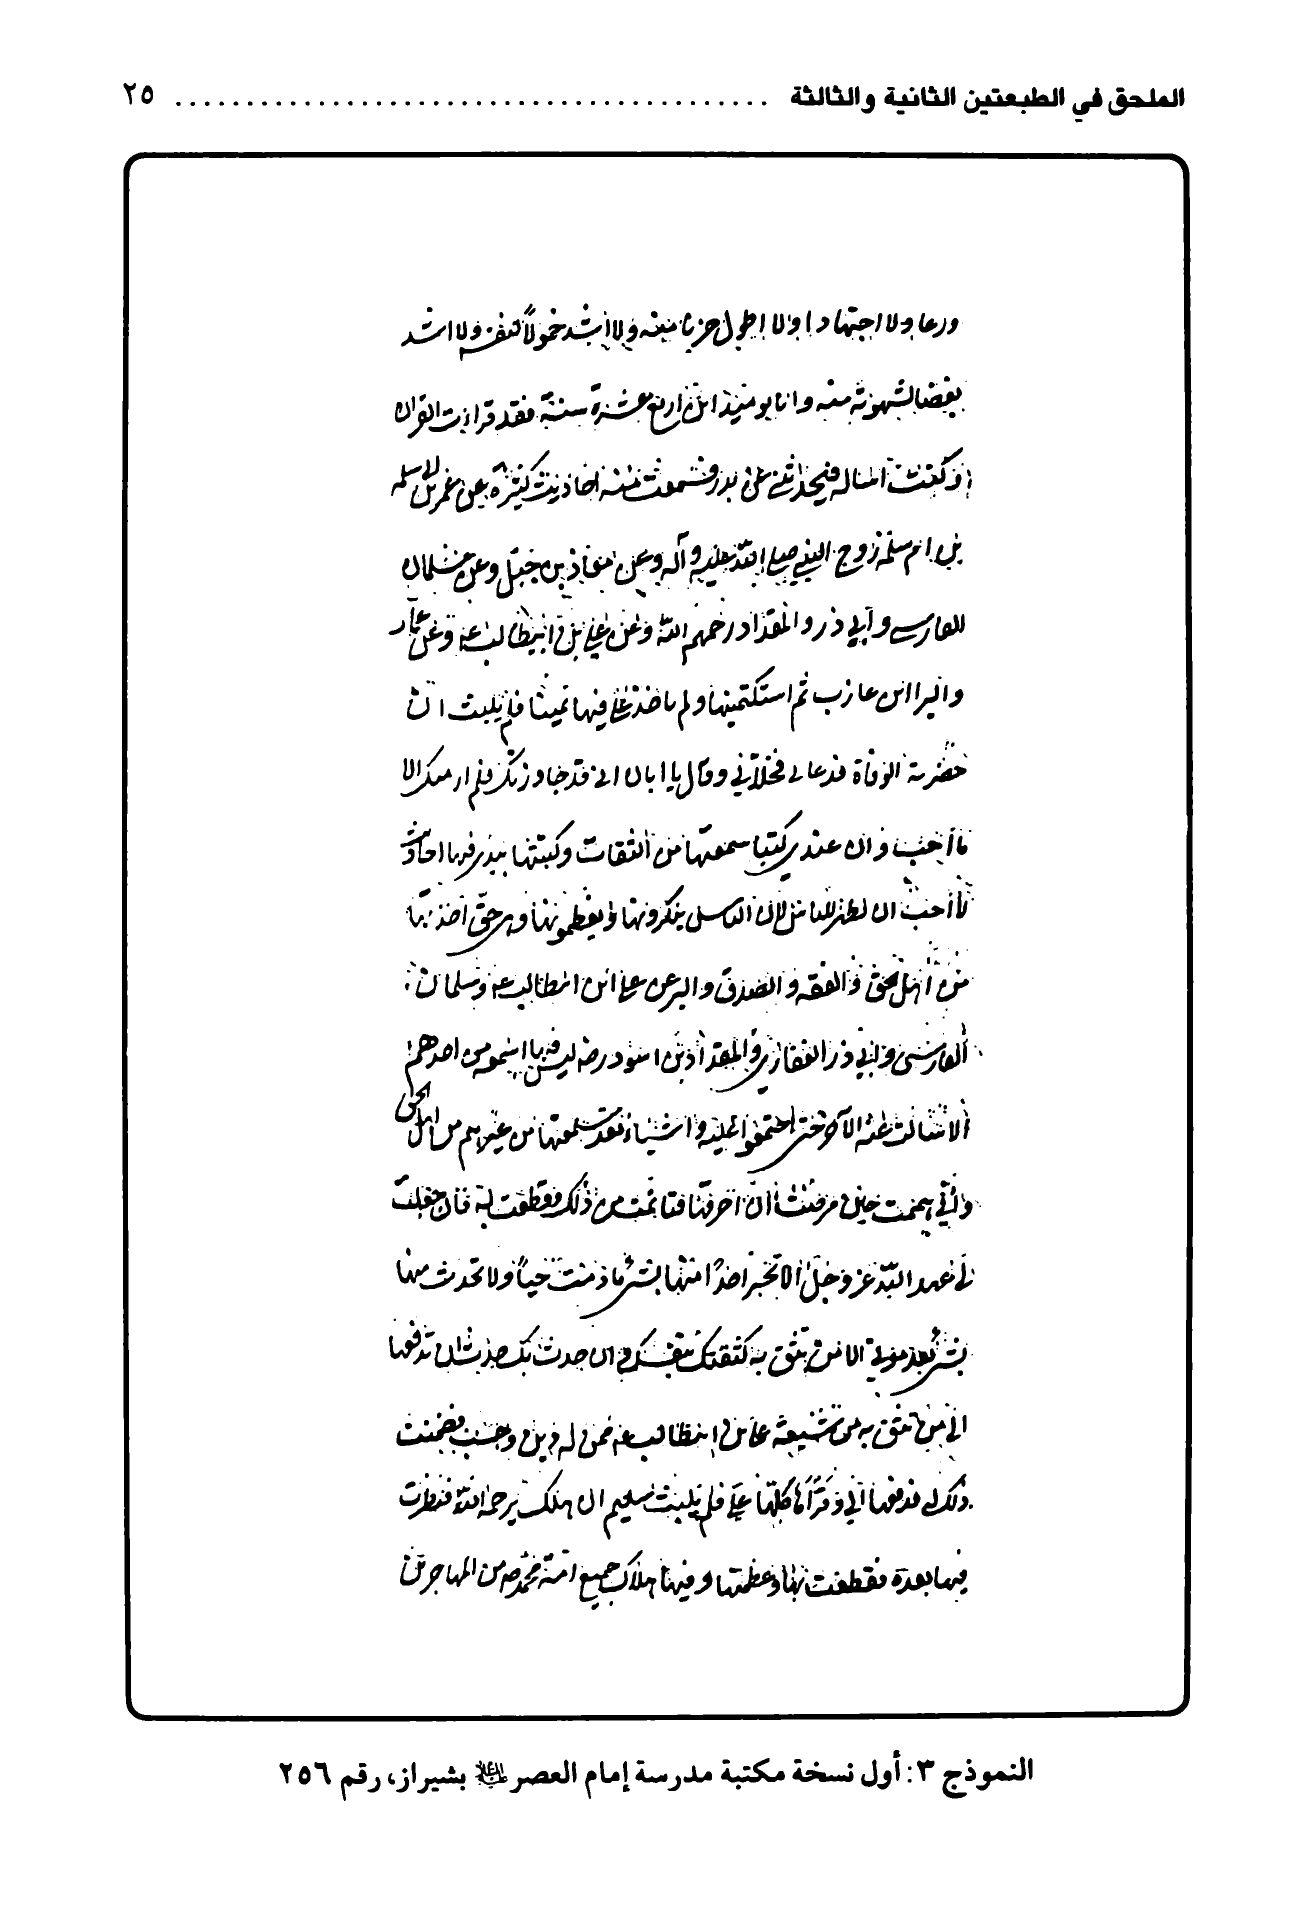 الملحق في الطبعتين الثانية والثالثة ........................................ ٢٥
ورعا ولا اجتهادا ولا اطول حزنا منه ولا اشد خمولا لنفسه ولا اشد
بغضا لشهوته منه وانا يومئذ ابن اربع عشرة سنة فقد قرات القران
وكنت اساله فيحدثني عن بدر فسمعت منه احاديث كثيرة عن عمر بن ابي سلمه
بن ام سلمة زوج النبي صلى الله عليه وآله وعن معاذ بن جبل وعن سلمان
الفارسي وأبي ذر والمقداد رحمهم الله وعن علي بن ابيطالب ع وعن عمار
والبرا ابن عازب ثم استكتمنيها ولم ياخذ علي فيها يمينا فلم يلبث ان
حضرته الوفاة فدعاني فخلا بي وقال يا ابان اني قد جاورتك فلم ار منك الا
ما أحب وان عندي كتبا سمعتها من الثقات وكتبتها بيدي فيها احاديث
لا أحب ان تظهر للناس لان الناس ينكرونها ويعظمونها وهي حق اخذتها
من أهل الحق والفقه والصدق والبر عن علي ابن ابيطالب ع وسلمان
الفارسي وأبي ذر الغفاري والمقداد بن اسود رض ليس فيها اسمعه من احدهم
الا سالت عنه الآخر حتى اجتمعوا عليه واشياء بعد سمعتها من غيرهم من اهل الحق
واني هممت حين مرضت أن احرقها فتاثمت من ذلك وقطعت به فان جعلت
لي عهد الله عز وجل الا تخبر احدا منها بشئ ما دمت حيا ولا تحدث منها
بشئ بعد موتي الا من تثق به كثقتك بنفسك وان حدث بك حدث ان تدفعها
الى من تثق به من شيعة علي بن ابيطالب ع ممن له دين وحسب فضمنت
ذلك له فدفعها الي وقرأها كلها علي فلم يلبث سليم ان هلك يرحمه الله فنظرت
فيها بعده فقطعت بها وعظمتها وفيها هلاك جميع امة محمد ص من المهاجرين
النموذج ٣: أول نسخة مكتبة مدرسة إمام العصر عليه السلام بشيراز، رقم ٢٥٦